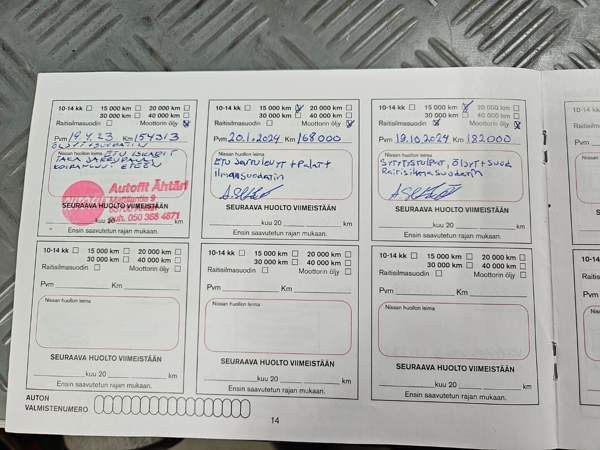 10-14 kk 15 000 km 20 000 km
30 000 km 40 000 km
Raitisilmasuodin Moottorin öljy
Pvm 19.4.23 Km 154313
Nissan huollon leima ETU ISKARIT
TAKA JARRUPALAT
Autofit Ähtäri
Puh. 050 368 4671
SEURAAVA HUOLTO VIIMEISTÄÄN
kuu 20 km
Ensin saavutetun rajan mukaan.
10-14 kk 15 000 km 20 000 km
30 000 km 40 000 km
Raitisilmasuodin Moottorin öljy
Pvm 20.1.2024 Km 168000
Nissan huollon leima
ETU JARRULEVYT + PALAT +
ilmansuodatin
SEURAAVA HUOLTO VIIMEISTÄÄN
kuu 20 km
Ensin saavutetun rajan mukaan.
10-14 kk 15 000 km 20 000 km
30 000 km 40 000 km
Raitisilmasuodin Moottorin öljy
Pvm 19.10.2024 Km 182000
Nissan huollon leima
SYTYTYSTULPAT, ÖLJYT + SUOD
Raitisilmasuodatin
SEURAAVA HUOLTO VIIMEISTÄÄN
kuu 20 km
Ensin saavutetun rajan mukaan.
10-14 kk 15 000 km 20 000 km
30 000 km 40 000 km
Raitisilmasuodin Moottorin öljy
Pvm Km
Nissan huollon leima
SEURAAVA HUOLTO VIIMEISTÄÄN
kuu 20 km
Ensin saavutetun rajan mukaan.
10-14 kk 15 000 km 20 000 km
30 000 km 40 000 km
Raitisilmasuodin Moottorin öljy
Pvm Km
Nissan huollon leima
SEURAAVA HUOLTO VIIMEISTÄÄN
kuu 20 km
Ensin saavutetun rajan mukaan.
10-14 kk 15 000 km 20 000 km
30 000 km 40 000 km
Raitisilmasuodin Moottorin öljy
Pvm Km
Nissan huollon leima
SEURAAVA HUOLTO VIIMEISTÄÄN
kuu 20 km
Ensin saavutetun rajan mukaan.
AUTON
VALMISTENUMERO
14